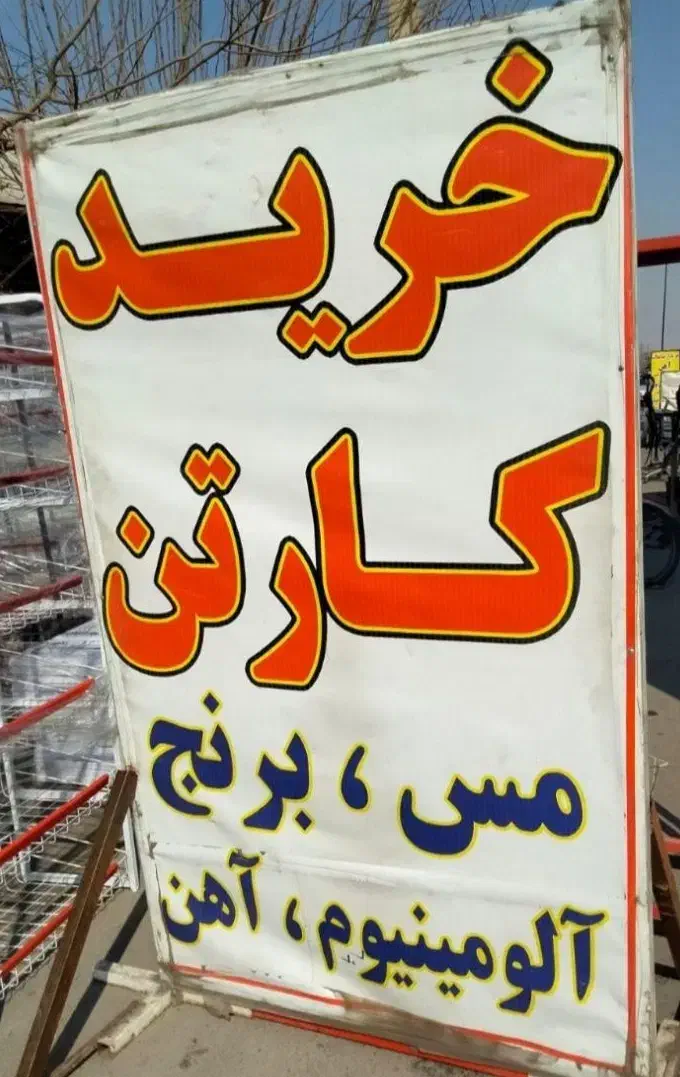 خرید
کارتن
مس ، برنج
آلومینیوم ، آهن